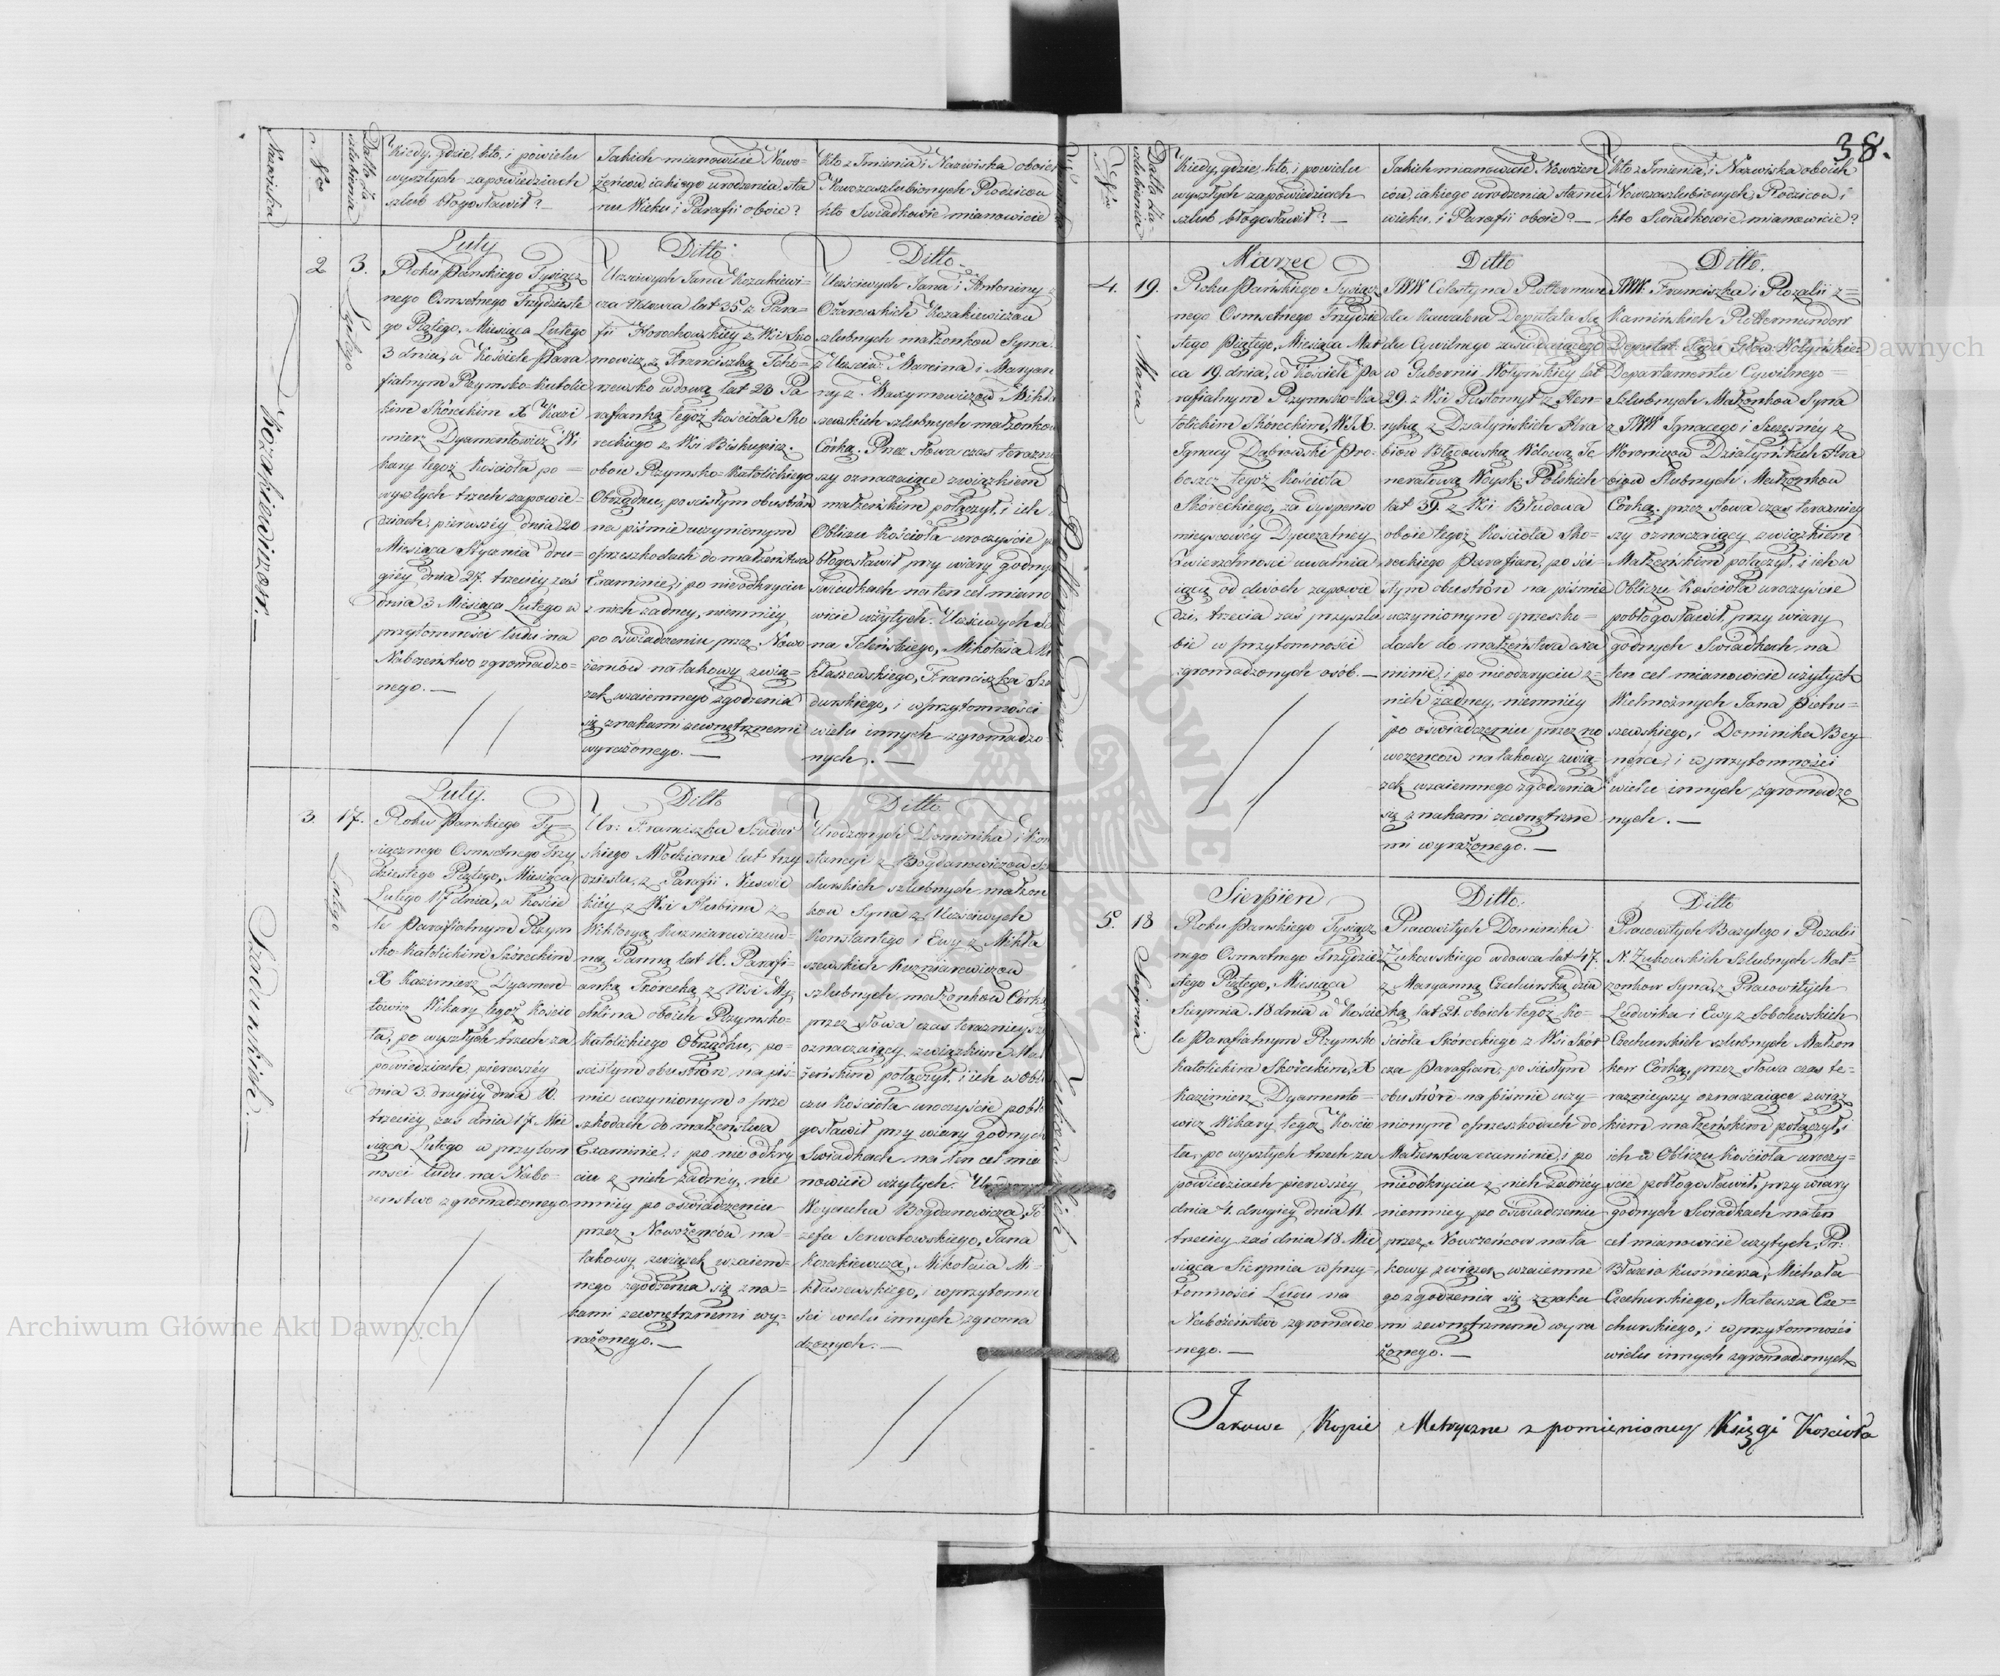 38.
Nazwiska
Nro
Datta Za-
szlubienia
Kiedy, gdzie, kto, i powielu
wyszłych zapowiedziach
szlub błogosławił? —
Jakich mianowicie Nowo=
żeńców iakiego urodzenia, sta
nu Wieku i Parafii oboie?
Kto z Imienia i Nazwiska oboich
Nowozaszlubionych Rodziców
kto Swiadkowie mianowicie
Kozakiewiczow. —
2
3.
Lutego
Luty
Roku Pańskiego Tysiącz
nego Osmsetnego Trzydzieste
go Piątego, Miesiąca Lutego
3 dnia, w Kościele Para
fialnym Rzymsko=Katolic
kim Skóreckim X Kazi
mierz Dyamentowicz Wi
kary tegoż Kościoła po=
wyszłych trzech zapowie=
dziach, pierwszéy dnia 20
Miesiąca Stycznia dru=
giéy dnia 27. trzeciéy zaś
dnia 3 Miesiąca Lutego w
przytomności ludu na
Nabożeństwo zgromadzo=
nego. —
Ditto
Uczciwych Jana Kozakiewi=
cza Wdowca lat 35. z Para=
fii Horochowskiéy z Wsi Sko
z Franciszką
wdową lat 20 Pa
rafianką tegoż Kościoła Sko
reckiego z Wsi Biskupicz.
oboie Rzymsko=Katolickiego
Obrządku, po scisłym obustrón
na piśmie uczynionym
oprzeszkodach do małżeństwa
Examinie, i po nieodkryciu
z nich żadney, niemniéy
po oświadczeniu przez Nowo
żeńców na takowy zwią=
zek wzaiemnego zgodzenia
się znakami zewnętrznemi
wyrażonego. —
Ditto
Uczciwych Jana i Antoniny z
Ożarowskich Kozakiewiczów
szlubnych małżonków Syna.
z Uczciw: Marcina i Maryan
ny z Maxymowiczów Mikła
szewskich szlubnych małżonków
Córką. Przez słowa czas teraźniey
szy oznaczaiące związkiem
małżeńskim połączył, i ich
Obliczu Kościoła uroczyście po
błogosławił przy wiary godnych
Swiadkach na ten cel miano
wicie użytych. Uczciwych Ja
na Mikołaia Mi
kłaszewskiego, Franciszka Sza
durskiego, i w przytomności
wielu innych zgromadzo=
nych. —
3.
17.
Lutego
Luty.
Roku Pańskiego Ty=
siącznego Osmsetnego Trzy
dziestego Piątego, Miesiąca
Lutego 17 dnia, w Kościo
le Parafialnym Rzym
sko-Katolickim Skóreckim
X Kazimierz Dyamen=
towicz Wikary tegoż Kościo
ła, po wyszłych trzech za
powiedziach, pierwszéy
dnia 3. drugiéy dnia 10.
trzeciéy zaś dnia 17. Mie
siąca Lutego w przytom
ności ludu na Nabo=
żeństwo zgromadzonego
Ditto
Ur: Franciszka Szadur
skiego Młodziana lat trzy
dziestu, z Parafii
kiéy z Wsi z
Wiktoryą Kuzniarewiczów=
ną Panną lat Parafi=
anką Skórecką z Wsi
oboich Rzymsko=
Katolickiego Obrządku, po=
scisłym obustrón na piś=
mie uczynionym o prze
szkodach do małżeństwa
Examinie, i po nieodkry
ciu z nich żadnéy, nie
mniéy po oświadczeniu
przez Nowożeńców na=
takowy związek wzaiem=
nego zgodzenia się zna=
kami zewnętrznemi wy=
rażonego. —
Ditto
Urodzonych Dominika i Kon
stancyi z Bogdanowiczów Sza
durskich szlubnych małżon
ków Syna z Uczciwych
Konstantego i Ewy z Mikła
szewskich Kuzniarewiczów
szlubnych małżonków Córką
przez słowa czas teraźnieyszy
oznaczaiący związkiem Mał
żeńskim połączył, i ich w Obli
czu Kościoła uroczyście pobło
gosławił przy wiary godnych
Swiadkach na ten cel mia
nowicie użytych.
Woyciecha Bogdanowicza, Jó
zefa Serwatowskiego, Jana
Kozakiewicza, Mikołaia Mi=
kłaszewskiego, i w przytomno
ści wielu innych zgroma
dzonych. —
Szadurskich. —
Nro
Datta Za-
szlubienia
Kiedy, gdzie, kto, i powielu
wyszłych zapowiedziach
szlub błogosławił? —
Jakich mianowicie Nowożeń
ców, iakiego urodzenia Stanu
wieku, i Parafii oboie? —
Kto z Imienia, i Nazwiska oboich
Nowozaszlubionych Rodziców i
kto Swiadkowie mianowicie?
4.
19.
Marca
Marzec
Roku Pańskiego Tysiącz
nego Osmsetnego Trzydzie
stego Piątego, Miesiąca Mar
ca 19 dnia, w Kościele Pa
rafialnym Rzymsko=Ka
tolickim Skóreckim, W.X.
Ignacy Dąbrowski Pro=
boszcz tegoż Kościoła
Skóreckiego, za dyspensą
mieyscowéy Dyecezalney
Zwierzchności uwalnia
iącą od dwóch zapowie
dzi, trzecia zaś przyszlu
bie w przytomności
zgromadzonych osób. —
Ditto
JWW Celestyna Rottermun
da Kawalera Deputata Są
du Cywilnego zasiadaiącego
w Gubernii Wołyńskiéy lat
29. z Wsi Pustomyt z Hen=
ryką z Działyńskich Hra
biów Błędowską Wdową Je
nerałową Woysk: Polskich
lat 39. z Wsi Błudowa
oboie tegoż Kościoła Skó=
reckiego Parafian, po ści
słym obustrón na piśmie
uczynionym oprzeszko=
dach do małżeństwa exa
minie, i po nieodkryciu z=
nich żadney, niemniéy
po oświadczeniu przez no
wożeńców na takowy zwią=
zek wzaiemnego zgodzenia
się znakami zewnętrzne
mi wyrażonego. —
Ditto.
JWW Franciszka i Rozalii z=
Kamińskich Rottermundów
Deputat: Sądu Głów: Wołyńskie=
Departamentu Cywilnego=
Szlubnych Małżonków Syna
z JWW Ignacego i Szczęsney z
Woroniczów Działyńskich Hra
biów Slubnych Małżonków
Córką. przez słowa czas teraźniey
szy oznaczaiący związkiem
Małżeńskim połączył, i ich w
Obliczu Kościoła uroczyście
pobłogosławił, przy wiary
godnych Swiadkach na
ten cel mianowicie użytych
Wielmożnych Jana Pietru=
szewskiego, i Dominika Bey
nera i w przytomności
wielu innych zgromadzo
nych. —
5.
18
Sierpnia
Sierpień
Roku Pańskiego Tysiącz
nego Osmsetnego Trzydzie
stego Piątego, Miesiąca
Sierpnia 18 dnia w Kościo
le Parafialnym Rzymsko
Katolickim Skóreckim, X
Kazimierz Dyamento=
wicz Wikary tegoż Kościo
ła, po wyszłych trzech za
powiedziach pierwszéy
dnia 4. drugiéy dnia 11.
trzeciey zaś dnia 18 Mie
siąca Sierpnia w przy=
tomności Ludu na
Nabożeństwo zgromadzo
nego. —
Ditto.
Pracowitych Dominika
Żukowskiego wdowca lat 47.
z Maryanną Czechurską dziew
ką lat 21. oboich tegoż Ko=
ścioła Skóreckiego z Wsi Skór
cza Parafian, po ścisłym
obustrón na piśmie uczy=
nionym oprzeszkodach do
Małżeństwa examinie, i po
nieodkryciu z nich żadnéy
niemniey po oświadczeniu
przez Nowożeńców na ta
kowy związek wzaiemne
go zgodzenia się znaka
mi zewnętrznemi wyra
żonego. —
Ditto
Pracowitych Bazylego i Rozalii
N. Żukowskich Szlubnych Mał=
żonków Syna, z Pracowitych
Ludwika i Ewy z Sobolewskich
Czechurskich szlubnych Małżon
ków Córką, przez słowa czas te=
raźnieyszy oznaczaiące związ
kiem małżeńskim połączył, i
ich w Obliczu Kościoła uroczy=
ście pobłogosławił, przy wiary
godnych Swiadkach na ten
cel mianowicie użytych. Pr:
Błażeia Kuśmierza, Michała
Czechurskiego, Mateusza Cze=
churskiego, i w przytomności
wielu innych zgromadzonych
Jakowe Kopie Metryczne z pomienioney Księgi Kościoła
Archiwum Główne Akt Dawnych
Archiwum Główne Akt Dawnych